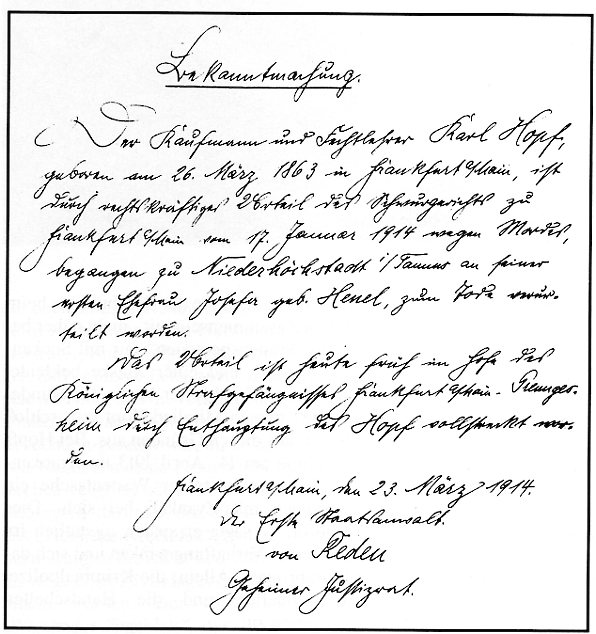 Bekanntmachung.
Der Kaufmann und Fechtlehrer Karl Hopf,
geboren am 26. März 1863 in Frankfurt a/Main, ist
durch rechtskräftiges Urteil des Schwurgerichts zu
Frankfurt a/Main vom 17. Januar 1914 wegen Mordes,
begangen zu Niederhöchstadt i/Taunus an seiner
ersten Ehefrau Josefa geb. Henel, zum Tode verur-
teilt worden.
Das Urteil ist heute früh im Hofe des
Königlichen Strafgefängnisses Frankfurt a/Main-Preunges-
heim durch Enthauptung des Hopf vollstreckt wor-
den.
Frankfurt a/Main, den 23. März 1914.
Der Erste Staatsanwalt.
von Reden
Geheimer Justizrat.